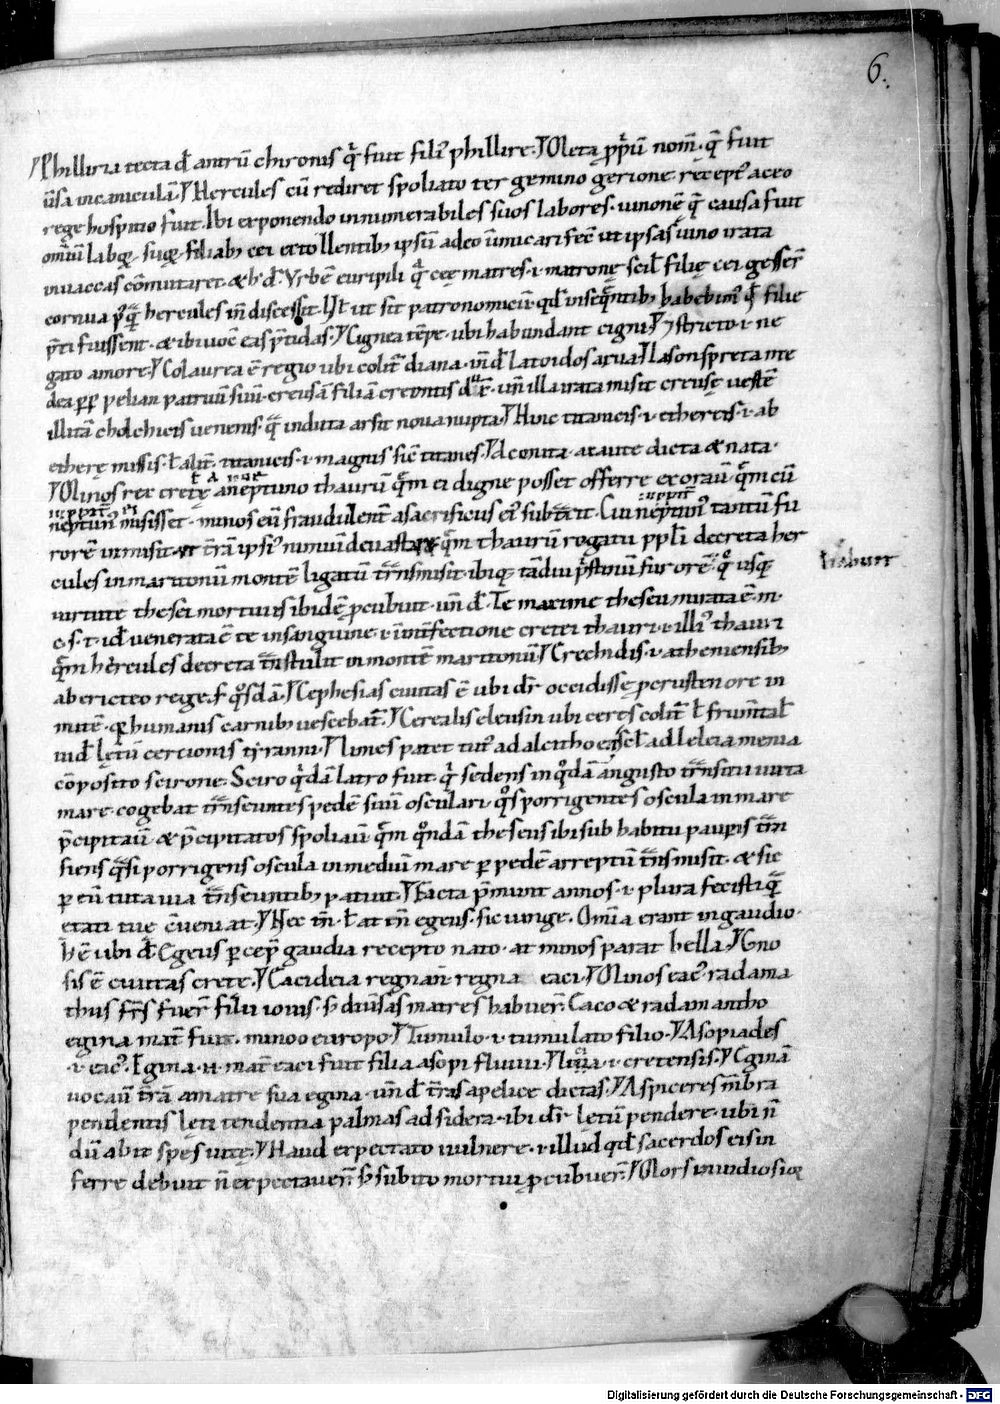 6.
Philliria tecta .d. antrū chironis q̇ fuit fili' phillire. Meta p̱priū nom̄. q̄ fuit
ūsa in caniculā. Hercules cū rediret spoliato ter gemino gerione recept' a ceo
rege hospitio fuit. Ibi exponendo innumerabiles suos labores. iunonē q̄ causa fuit
omniū labor̨. suor̨. filiab; cei extollentib; ipsū adeo inimicari fec̄ ut ipsas iuno irata
in uaccas cōmutaret. & h' .d. Vrbē euripili q̇ cęę matres .i. matronę scil' filię cei gesser̄
cornua p'q̄ hercules in̄ discessit. Ul' ut sit patronomicū. qd' in seq̄ntib; habebim' qd' filie
p̄ti fuissent. & ibi uoc̄ eas p̄tidas. Cignea tēpe. ubi habundant cigni. stricto .i. ne
gato amore. Colaurea ē regio ubi colit̄ diana. un̄ .d. latoidos arua. Iason spreta me
dea p̱p̱ pelian patruū suū. creusā filiā creontis dux̄. un̄ illa irata misit creusę uestē
illitā cholchicis uenenis. q̄ induta arsit noua nupta. Huic titaneis .i. ethereis .i. ab
etherę missis. l' alit̄. titaneis .i. magnis sic̄ titanes. Aconita. a caute dicta & nata.
Minos rex cretę a neptuno thaurū q̄m ei digne posset offerre exorau̅. q̄m cū
iuppiter
neptun' misisset. minos eū fraudulent̄ a sacrificiis ei' subtraxit. Cui neptun' tantū fu
rorē inmisit ut trā ipsi' nimiū deuastaret q̄m thaurū rogatu ppl'i decreta her
cules in maritoniū montē ligatū trānsmisit. ibiq; tādiu p̄stinū furorē. q̊ usq;
habuit
uirtute thesei mortuus ibidē p̱cubuit. un̄ .d. Te maxime theseu mirata ē m.
c. s. t. id' uenerata ē te in sanguine .i. in int̄fectione cretei thauri .i. illi' thauri
q̄m hercules decreta trānstulit in montē maritoniū. Crechidis .i. atheniensib;
ab ericteo rege. Cephesias ciuitas ē ubi dr̄ occidisse p̱crusten ore in
mitē. q̱ humanis carnib; uescebat̄. Cerealis eleusin ubi ceres colit̄ l' frum̄tal'
uid' lętū cercionis tyranni. Limes patet tut' ad alcitho ę scil' ad leleia menia
cōposito scirone. Sciro q̇dā latro fuit. q̇ sedens in q̊dā angusto trānsitu iuxta
mare cogebat trānseuntes pedē suū osculari. q̊s porrigentes oscula in mare
p̄cipitau̅ & p̄cipitatos spoliau̅. q̄m q̊ndā theseus ibi sub habitu paup̱is trān
siens q̄si porrigens oscula in mediū mare p̱ pedē arreptū trānsmisit. & sic
p̱ eū tuta uia trānseuntib; patuit. Facta p̄munt annos .i. plura fecisti q̄
etati tuę cōueniat. Nec tm̄. l' at tn̄ egens. sic iunge. Omia erant in gaudio.
h' ē ubi .d. Egeus p̱cep̱ gaudia recepto nato. at minos parat bella. Gno
sis ē ciuitas crete. Eacideia regnan̄ regna eaci. Minos eac' radama
thus fr̄s fuer̄ filii iouis. s' diuersas matres habuer̄. Eaco & radamantho
egina mat̄ fuit. minoo europo. Tumulo .i. tumulato filio. Asopiades
.i. eac'. Egina .n. mat̄ eaci fuit filia asopi fluuii. .i. cretensis. Eginā
uocau̅ trā a matre sua egina. un̄ .d. tras apelice dictas. Aspiceres mēbra
pendentis lęti tendentia palmas ad sidera. ibi dr̄ lętū pendere. ubi n̄
dū abiit spes uitę. Haud expectato uulnere .i. illud qd' sacerdos eis in
ferre debuit n̄ expectauer̄. s' subito mortui p̱cubuer̄. Mors inuidiosiq;
Digitalisierung gefördert durch die Deutsche Forschungsgemeinschaft - DFG